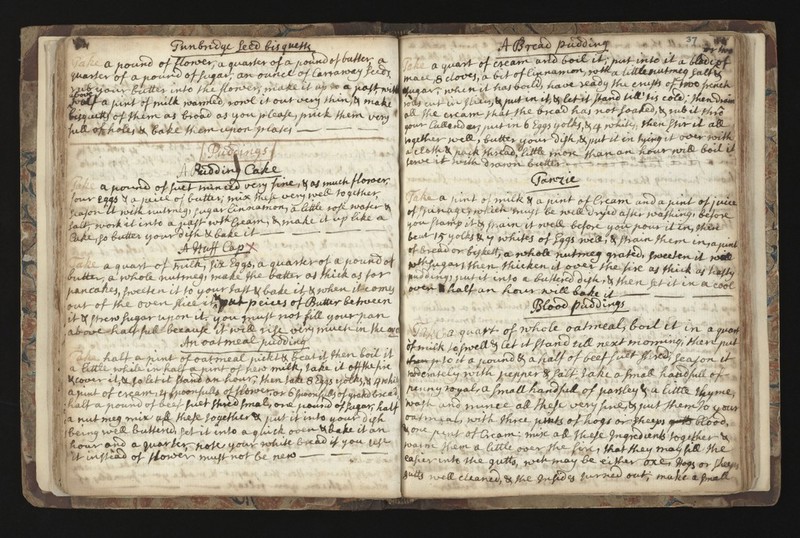 Tunbridge seed bisquetts
Take a pound of flower, a quarter of a pound of butter, a
quarter of a pound of sugar, an ounce of Carraway seeds,
rub your butter into the flower, make it up to a past with
above
half a pint of milk warmed, rowl it out very thin, & make
bisquets of them as broad as you please, prick them very
full of holes & bake them upon plates
Puddings
A Pudding Cake
Take a pound of suet minced very fine, & as much flower,
four Eggs & a peice of butter, mix these very well together,
season it with nutmeg, sugar Cinnamon, a little rose water &
salt, work it into a past with Cream, & make it up like a
Cake, so butter your dish & bake it
A Stuff Cap
Take a quart of milk, six Eggs, a quarter of a pound of
butter, a whole nutmeg, make the batter as thick as for
pancakes, sweeten it to your tast & bake it & when it comes
out of the oven slice it & put peices of Butter between
it & strew sugar upon it, you must not fill your pan
above half full because it will rise very much in the
An oatmeal pudding
Take half a pint of oatmeal pickt & beat it then boil it
a little while in half a pint of new milk, take it off the fire
& cover it, & so let it stand an hour, then take 8 Eggs yolks, & 4 whites
a pint of cream, 4 spoonfulls of flower, or 6 spoonfulls of grated bread,
half a pound of beef suet shred small, one pound of sugar, half
a nutmeg mix all these together & put it into your dish
being well buttered set it into a quick oven & bake it an
hour and a quarter, note your white bread if you use
it instead of flower must not be new
37
A Bread pudding
Take a quart of cream and boil it, put into it a blade of
mace & cloves, a bit of Cinnamon, with a little nutmeg salt &
sugar, when it has boild, have ready the crust of two penny
in slices, & put in it, & let it stand till tis cold, then drain
all the cream that the bread has not soaked, & rub it thro
your Cullender, put in 6 Eggs yolks, & 4 whites, then stir it all
together well, butter your dish, & put it in tying it over with
a cloth & pack thread, little more than an hour will boil it
serve it with drawn butter
Tanzie
Take a pint of milk & a pint of Cream and a pint of juice
of spinage which must be well dryed after washing, before
you stamp it & strain it well before you pour it in, then
beat 15 yolks & 7 whites of Eggs well, & strain them in, a pint
of bread or bisket, a whole nutmeg grated, sweeten it well
with sugar, then thicken it over the fire as thick as hasty
pudding, put it into a buttered dish, & then set it in a cool
oven half an hour will bake it
Blood puddings
Take a quart of whole oatmeal, boil it in a quart
of milk to swell & let it stand till next morning, then put
to it a pound & a half of beef suet shred, season it
with pepper & salt take a small handfull of
penny royal, a small handfull of parsley & a little thyme,
wash and mince all these very fine, & put them to your
oatmeal, with three pints of hogs or sheeps blood,
& one pint of Cream, mix all these Ingredients together &
warm them a little over the fire, that they may fill the
easier into the gutts, which may be either oxe, Hogs or sheeps
gutts well cleaned, & the insides turned out, make a small